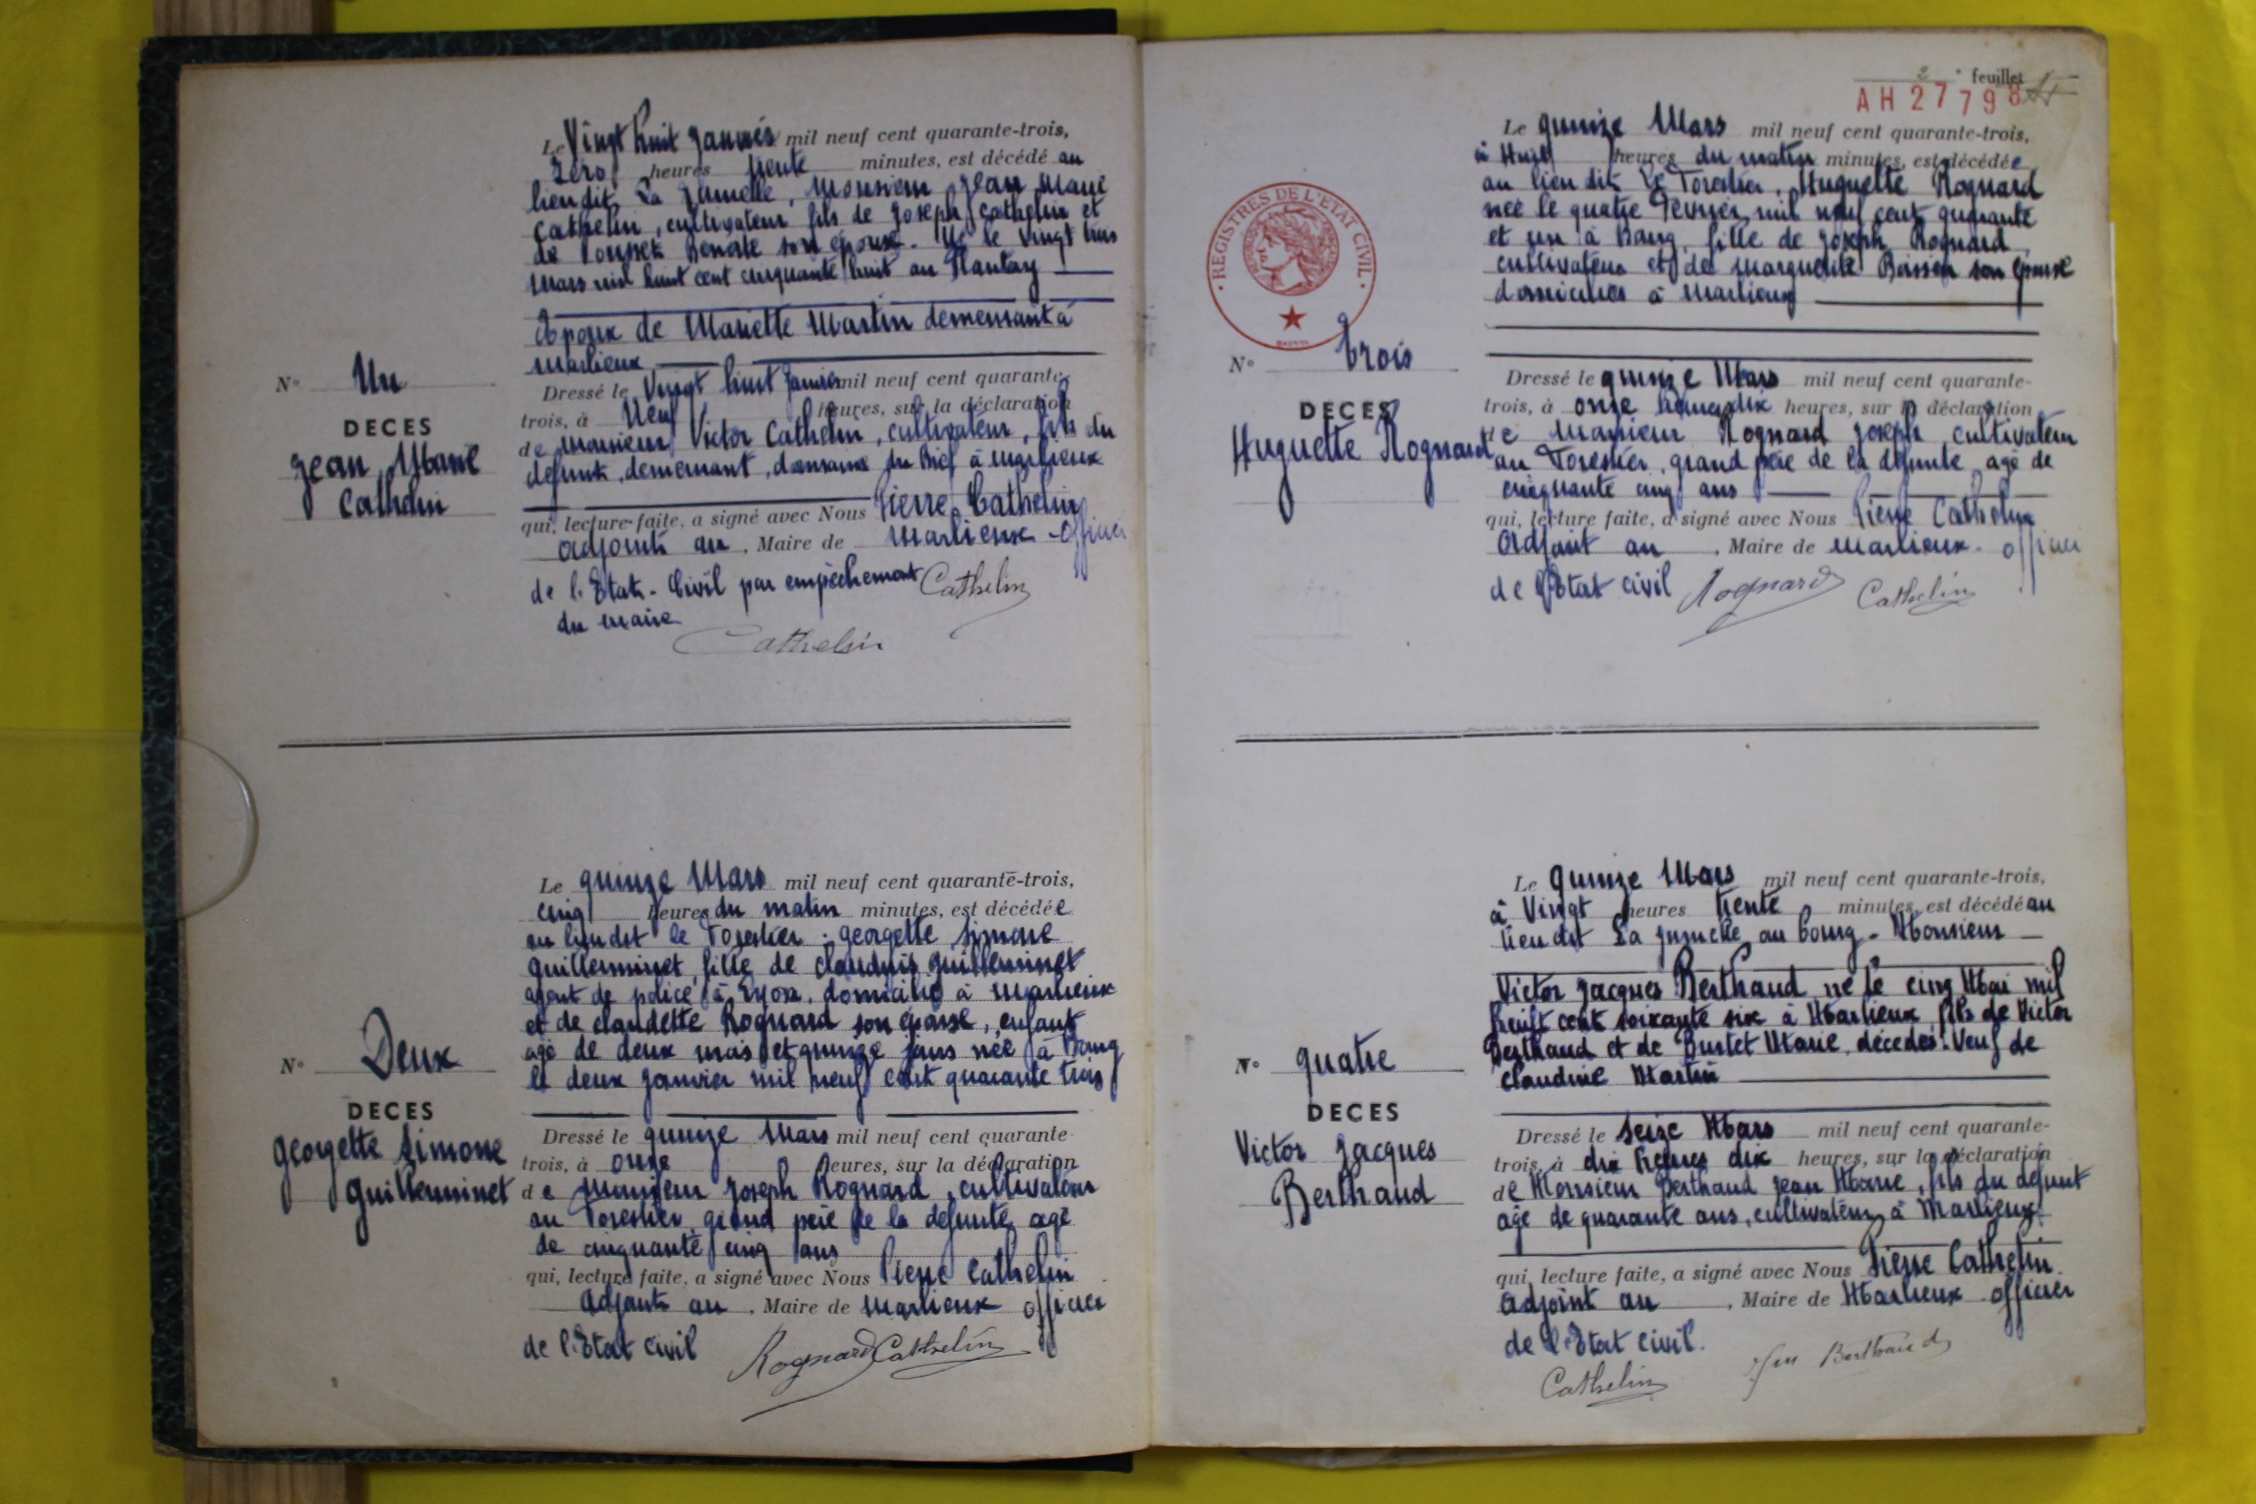 Le Vingt huit Janvier mil neuf cent quarante-trois,
Zéro heures trente minutes, est décédé au
lieu dit La Jumelle, Monsieur Jean Marie
Cathelin, cultivateur fils de Joseph Cathelin et
de Pousset Benoite son épouse. Né le Vingt trois
Mars mil huit cent cinquante huit au Plantay
Epoux de Mariette Martin demeurant à
Marlieux
N° Un
DECES
Jean Marie
Cathelin
Dressé le Vingt huit Janvier mil neuf cent quarante-
trois, à Neuf heures, sur la déclaration
de Monsieur Victor Cathelin, cultivateur, fils du
défunt, demeurant, domaine du Bief à Marlieux
qui, lecture faite, a signé avec Nous Pierre Cathelin
adjoint au , Maire de Marlieux - officier
de l'Etat-Civil par empêchement Cathelin
du maire
Cathelin
Le quinze Mars mil neuf cent quarante-trois,
cinq heures du matin minutes, est décédée
au lieu dit le Forestier : Georgette Simone
Guillerminet, fille de Claudius Guillerminet
agent de police à Lyon, domicilié à Marlieux
et de Claudette Rognard son épouse, enfant
agé de deux mois et quinze jours née à Bourg
le deux Janvier mil neuf cent quarante trois
N° Deux
DECES
Georgette Simone
Guillerminet
Dressé le quinze Mars mil neuf cent quarante-
trois, à onze heures, sur la déclaration
de Monsieur Joseph Rognard, cultivateur
au Forestier, grand père de la défunte, agé
de cinquante cinq ans
qui, lecture faite, a signé avec Nous Pierre Cathelin
Adjoint au , Maire de Marlieux officier
de l'Etat civil Rognard Cathelin
2e feuillet
AH 27798
Le quinze Mars mil neuf cent quarante-trois,
à Huit heures du matin minutes, est décédée
au lieu dit Le Forestier, Huguette Rognard
née le quatre Février mil neuf cent quarante
et un à Bourg, fille de Joseph Rognard
cultivateur et de Marguerite Boisson son épouse
domiciliés à Marlieux
REGISTRES DE L'ETAT CIVIL
N° trois
DECES
Huguette Rognard
Dressé le quinze Mars mil neuf cent quarante-
trois, à onze heures dix heures, sur la déclaration
de Monsieur Rognard Joseph cultivateur
au Forestier, grand père de la défunte agé de
cinquante cinq ans
qui, lecture faite, a signé avec Nous Pierre Cathelin
Adjoint au , Maire de Marlieux - officier
de l'Etat civil Rognard Cathelin
Le quinze Mars mil neuf cent quarante-trois,
à Vingt heures trente minutes, est décédé au
lieu dit La au bourg - Monsieur
Victor Jacques Berthaud né le cinq Mai mil
huit cent soixante six à Marlieux, fils de Victor
Berthaud et de Burtet Marie, décédés. Veuf de
Claudine Martin
N° quatre
DECES
Victor Jacques
Berthaud
Dressé le seize Mars mil neuf cent quarante-
trois, à dix heures dix heures, sur la déclaration
de Monsieur Berthaud Jean Marie, fils du défunt
agé de quarante ans, cultivateur à Marlieux
qui, lecture faite, a signé avec Nous Pierre Cathelin
Adjoint au , Maire de Marlieux officier
de l'Etat civil.
Cathelin Berthaud